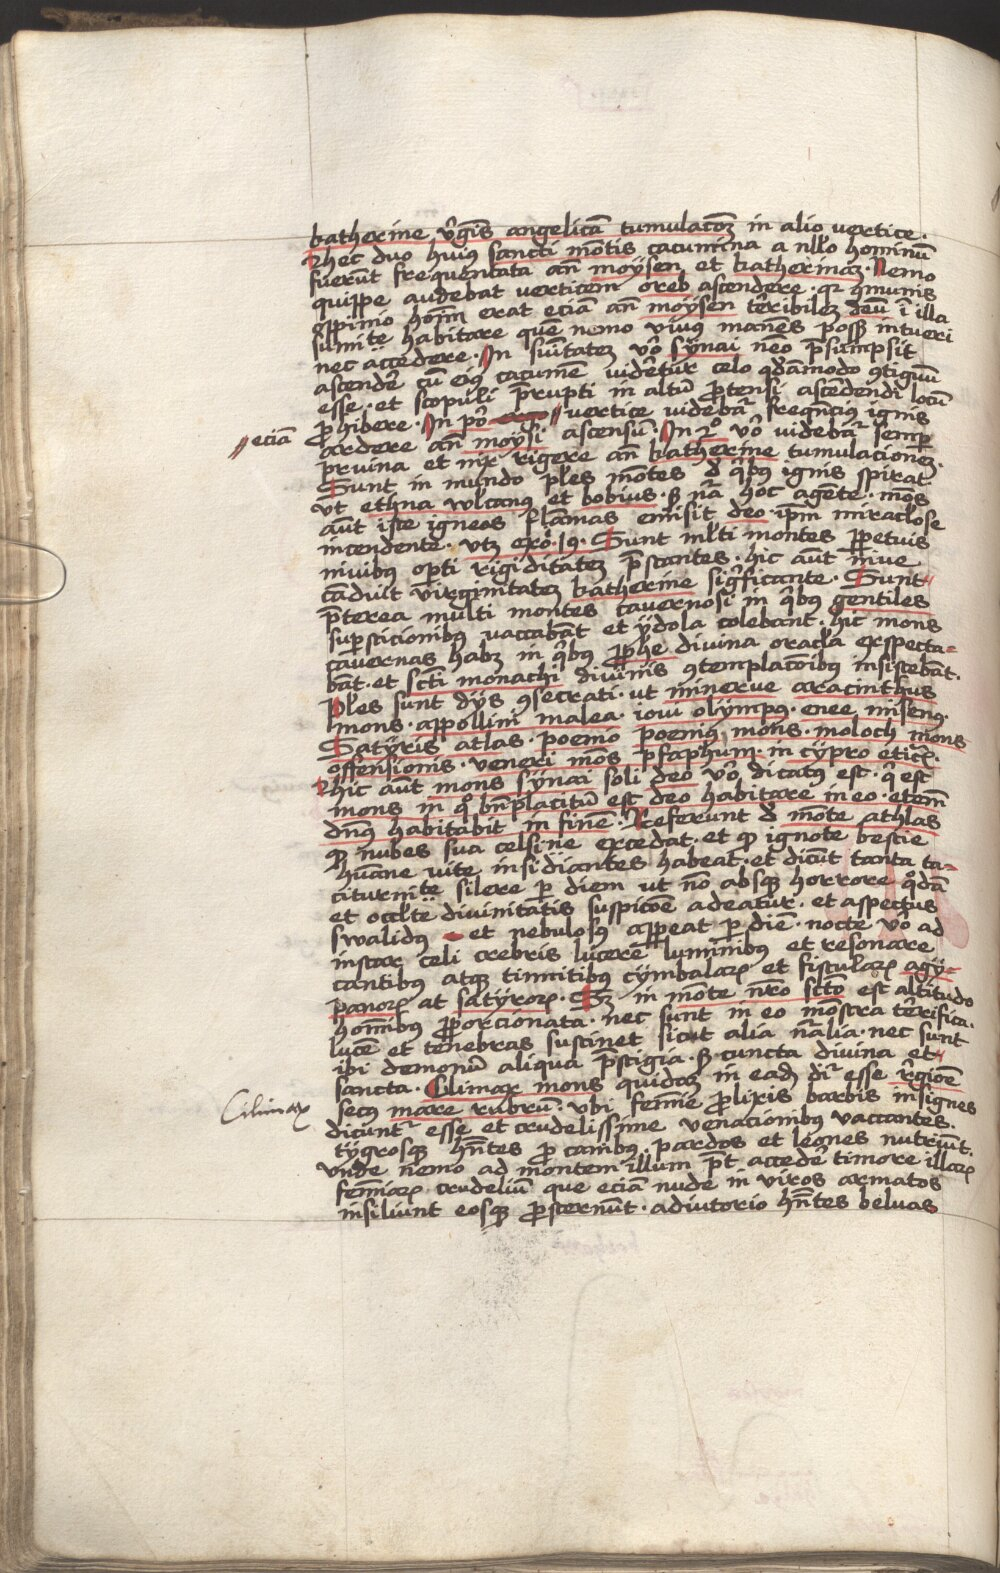 katherine v̄gīs angelicā tumulacōꝫ in alio vertice.
Et hec duo huiꝰ sancti mōtis cacumina a nllo hominū
fuerūt frequentata an̄ moÿsen et katherinaꝫ. Nemo
quippe audebat verticem oreb ascendere. qꝛ ꝯmunis
opinio hoīm erat eciā an̄ moÿsen terribilez deū ī illa
sumite habitare quē nemo viuꝰ manēs possꝫ intueri
nec accedere. In sūitateꝫ v̊o sÿnai nēo p̄sumpsit
ascendē cū eiꝰ cacumē videretur celo qdāmodo ꝯtiguū
esse. et scopuli p̄rupti in altū ꝓtensi ascēdendi locū
ꝓhibere. In p̊o vertice videbaꞇ̃ freqn̄ciꝰ ignis
eciā
ardere an̄ moÿsi ascensū. In 2̊o v̊o videbaꞇ̃ semꝑ
pruina et nix rigere an̄ katherine tumulacioneꝫ.
Sunt in mundo ꝑles mōtes d̄ qͥbꝰ ignis spirat
vt ethna wlcanꝰ et bobius. sꝫ nā hoc agēte. mōs
aūt iste igneas flāmas emisit deo ip̄m miracl̄ose
incendente. vtꝫ exo. 19. Sunt ml̄ti montes ꝑpetuis
niuibus oꝑti rigiditateꝫ p̄stantes. hic aūt niue
cāduit v̄irginitateꝫ katherine sigͥficante. Sunt
p̄terea multi montes cauernosi in qͥbꝰ gentiles
suꝑsticionibꝰ vaccabāt et ÿdola colebant. hic mons
cauernas habꝫ in qͥbꝰ ꝓphe divina oracl̄a exspecta-
bāt. et sc̄ti monachi diuinis ꝯtemplacōibꝰ insistebāt.
Ples sunt dÿs ꝯsecrati. ut minerue aracinthus
mons. appollini malea. ioui olÿmpꝰ. enee misenꝰ.
Satÿris atlas. poemo poemiꝰ mons. moloch mons
offensionis. veneri mōs psaphum. in cÿpro etic̄.
Et hic aūt mons sÿnai soli deo v̊o dicatꝰ est. qͥ est
mons in qͦ bn̄placitū est deo habitare in eo. etem̄
dn̄ꝰ habitabit in finē. Referunt d̄ mōte athlas
ꝙ nubes sua celsīne excedat. et ꝙ ignote bestie
huāne uite insidiantes habeāt. et dicūt tanta ta-
citurnite silere ꝑ diem ut nō absqꝫ horrore qͦdā
et occl̄te diuinitatis suspicōe adeatur. et aspectus
swalidꝰ et nebulosꝰ appeat ꝑ diē. nocte v̊o ad
instar celi crebris lucerē luminibꝰ et resonare
cantibus atqꝫ tinnitibus cÿmbalaꝝ et fistularꝝ agÿ-
panoꝝ at satÿroꝝ. Sꝫ in mōte nr̄o sc̄to est altitudo
homībus ꝓporcionata. nec sunt in eo mōstra ter̄rifica.
lucē et tenebras sustinet sicut alia nr̄alia. nec sunt
ibi demonū aliqua p̄stigia. sꝫ cuncta diuina et
sancta. Climax mons quidaꝫ in eadꝫ dīꞇ̃ esse r̄gioē
Climax
secꝰ mare rubrū. vbi fem̄ie ꝓlixis barbis insignes
dicuntꞇ̃ esse et crudelissime venacionibꝰ vaccantes.
tÿgrosqꝫ hn̄tes ꝓ canibꝰ. pardos et leones nutriūt.
vnde nemo ad montem illum p̄t accedē timore illaꝝ
fem̄iaꝝ crudeliū que eciā nude in viros armatos
insiliunt eosqꝫ ꝓsternūt. adiutorio hn̄tes beluas